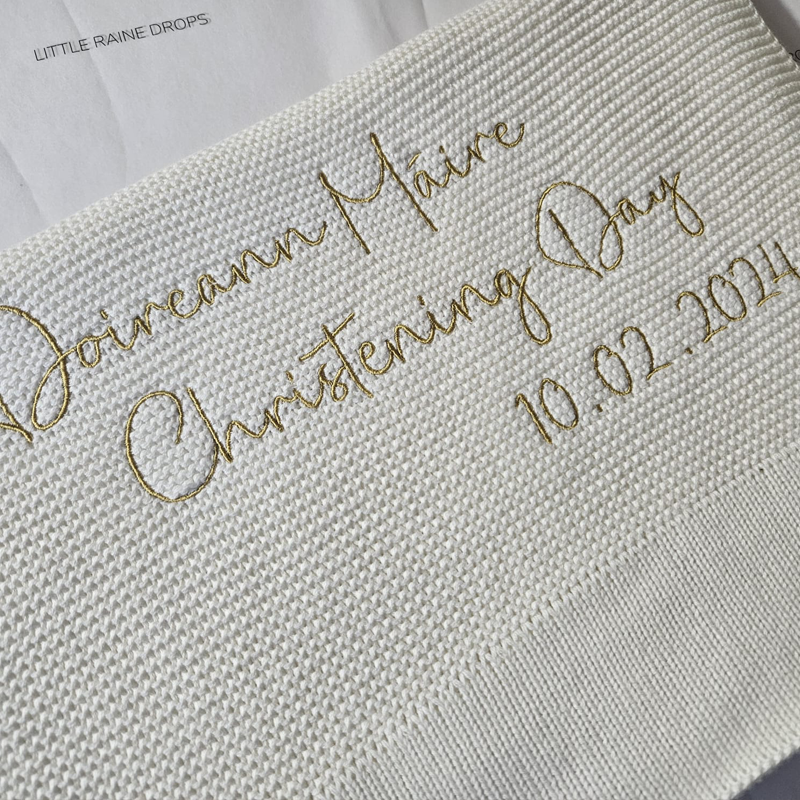 LITTLE RAINE DROPS
Doireann Máire
Christening Day
10.02.2024